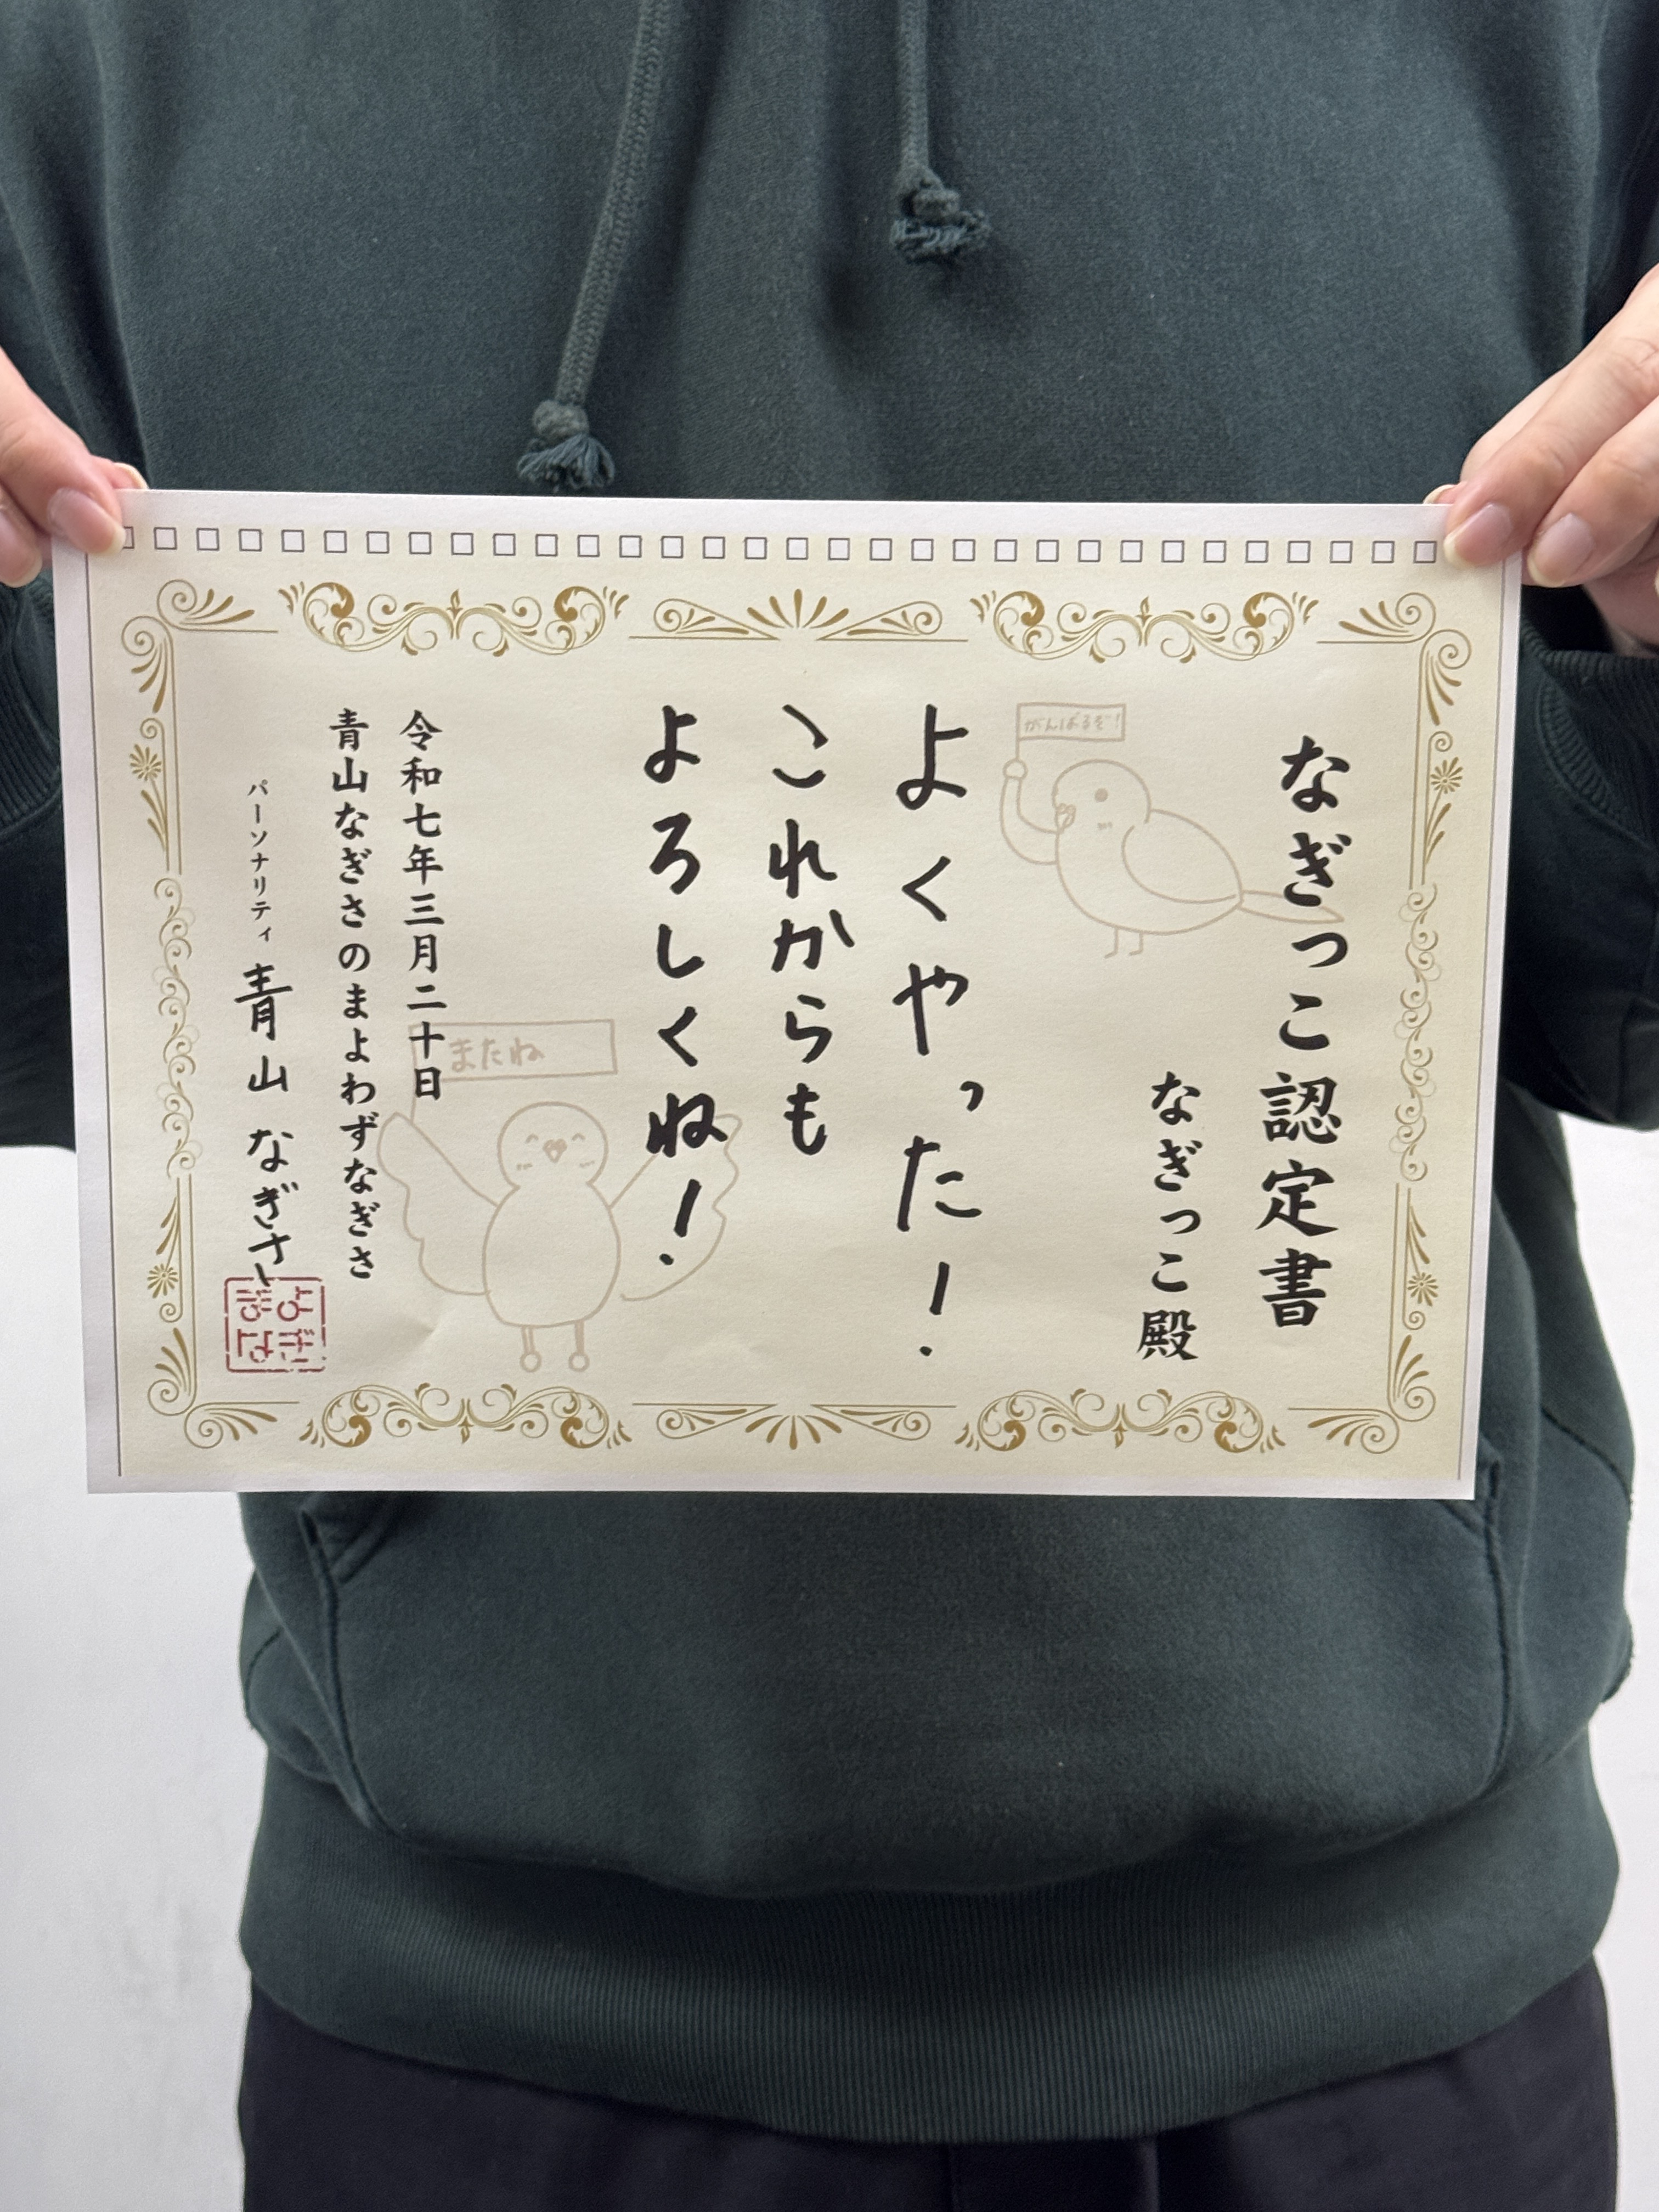 なぎっこ認定書
なぎっこ殿
がんばるぞ!
よくやった!
これからも
よろしくね!
またね
令和七年三月二十日
青山なぎさのまよわずなぎさ
パーソナリティ 青山 なぎさ